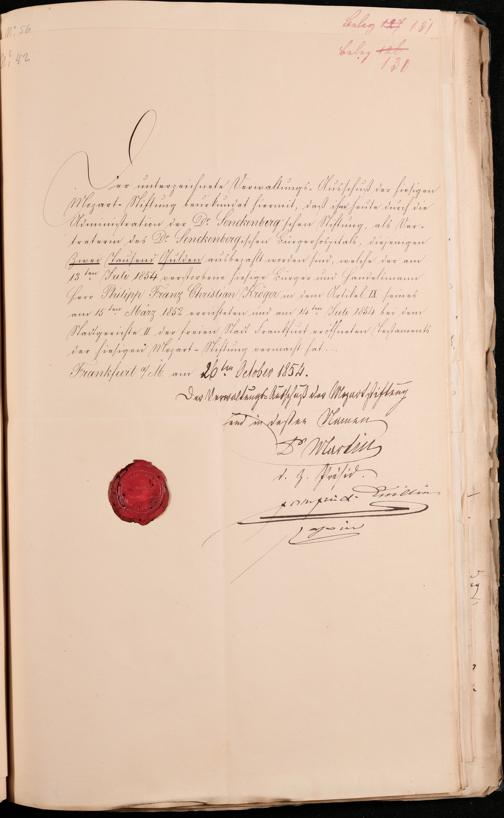 No 56
No 42
Beleg 127 131
Beleg 126
131
Der unterzeichnete Verwaltungs-Ausschuß der hiesigen
Mozart-Stiftung beurkundet hiermit, daß ihm heute durch die
Administration der Dr. Senckenberg'schen Stiftung, als Ver-
treterin des Dr. Senckenbergischen Bürgerhospitals, diejenigen
Zwei Tausend Gulden ausbezahlt worden sind, welche der am
13ten Juli 1854 verstorbene hiesige Bürger und Handelsmann
Herr Philipp Franz Christian Kröger in dem Artikel IX seines
am 15ten März 1852 errichteten und am 14ten Juli 1854 bei dem
Stadtgerichte II der freien Stadt Frankfurt eröffneten Testaments
der hiesigen Mozart-Stiftung vermacht hat.
Frankfurt a/M. am 26ten October 1854.
Der Verwaltungs-Ausschuß der Mozartstiftung
und in dessen Namen
Dr Martin
d. Z. Präsid.